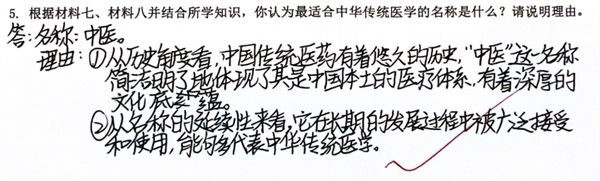 5. 根据材料七、材料八并结合所学知识，你认为最适合中华传统医学的名称是什么？请说明理由。
答:名称:中医。
理由:①从历史角度看,中国传统医药有着悠久的历史,"中医"这一名称
简洁明了地体现了其是中国本土的医疗体系,有着深厚的
文化底蕴。
②从名称的延续性来看,它在长期的发展过程中被广泛接受
和使用,能够代表中华传统医学。